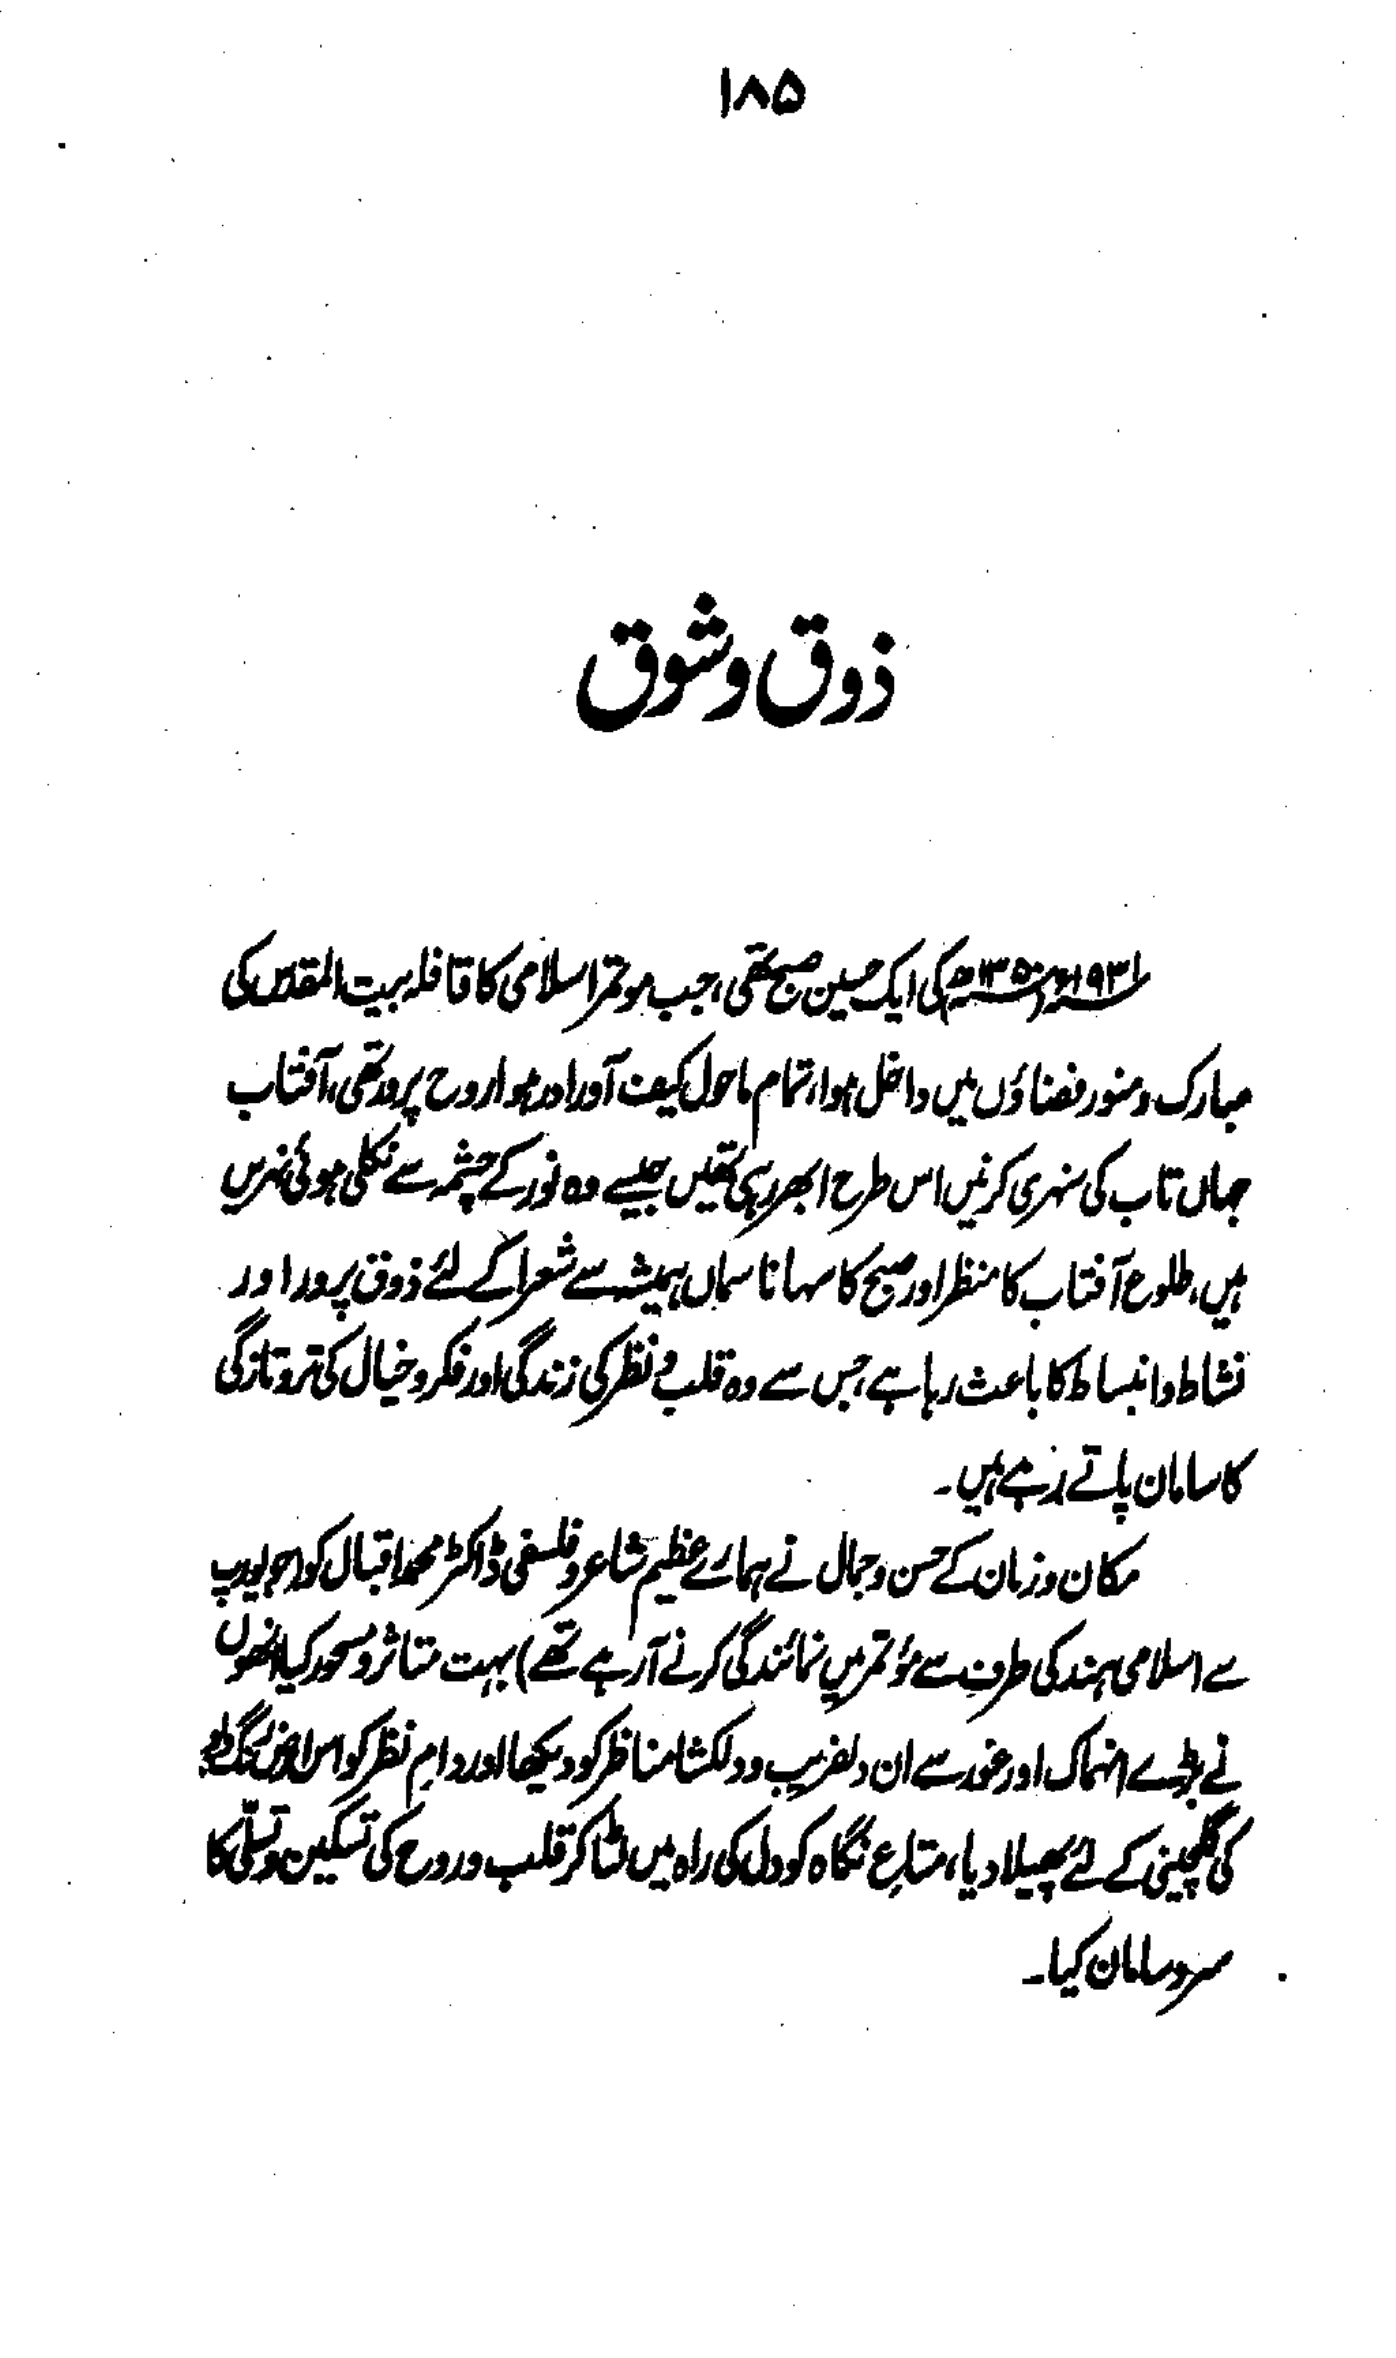 ۱۸۵
ذوق و شوق
۱۹۳۱ء (۱۳۵۰ھ) کی ایک حسین صبح تھی، جب موتمر اسلامی کا قافلہ بیت المقدس کی
مبارک و منور فضاؤں میں داخل ہوا، تمام ماحول کیف آور اور ہوا روح پرور تھی، آفتاب
جہاں تاب کی سنہری کرنیں اس طرح ابھر رہی تھیں جیسے وہ نور کے چشمہ سے نکلی ہوئی نہریں
ہیں، طلوع آفتاب کا منظر اور صبح کا سہانا سماں ہمیشہ سے شعرا کے لئے ذوق پرور اور
نشاط و انبساط کا باعث رہا ہے، جس سے وہ قلب و نظر کی زندگی اور فکر و خیال کی تر و تازگی
کا سامان پاتے رہے ہیں۔
مکان و زمان کے حسن و جمال نے ہمارے عظیم شاعر و فلسفی ڈاکٹر محمد اقبال کو (جو یورپ
سے اسلامی ہند کی طرف سے مؤتمر میں نمائندگی کرنے آرہے تھے) بہت متاثر و مسحور کیا، انھوں
نے بڑے انہماک اور غور سے ان دلفریب و دلکشا مناظر کو دیکھا اور دامِ نظر کو اس ارض
کی گلچینی کے لئے پھیلا دیا، متاعِ نگاہ کو دل کی راہ میں لٹا کر قلب و روح کی تسکین و تسلّی کا
سر و سامان کیا۔